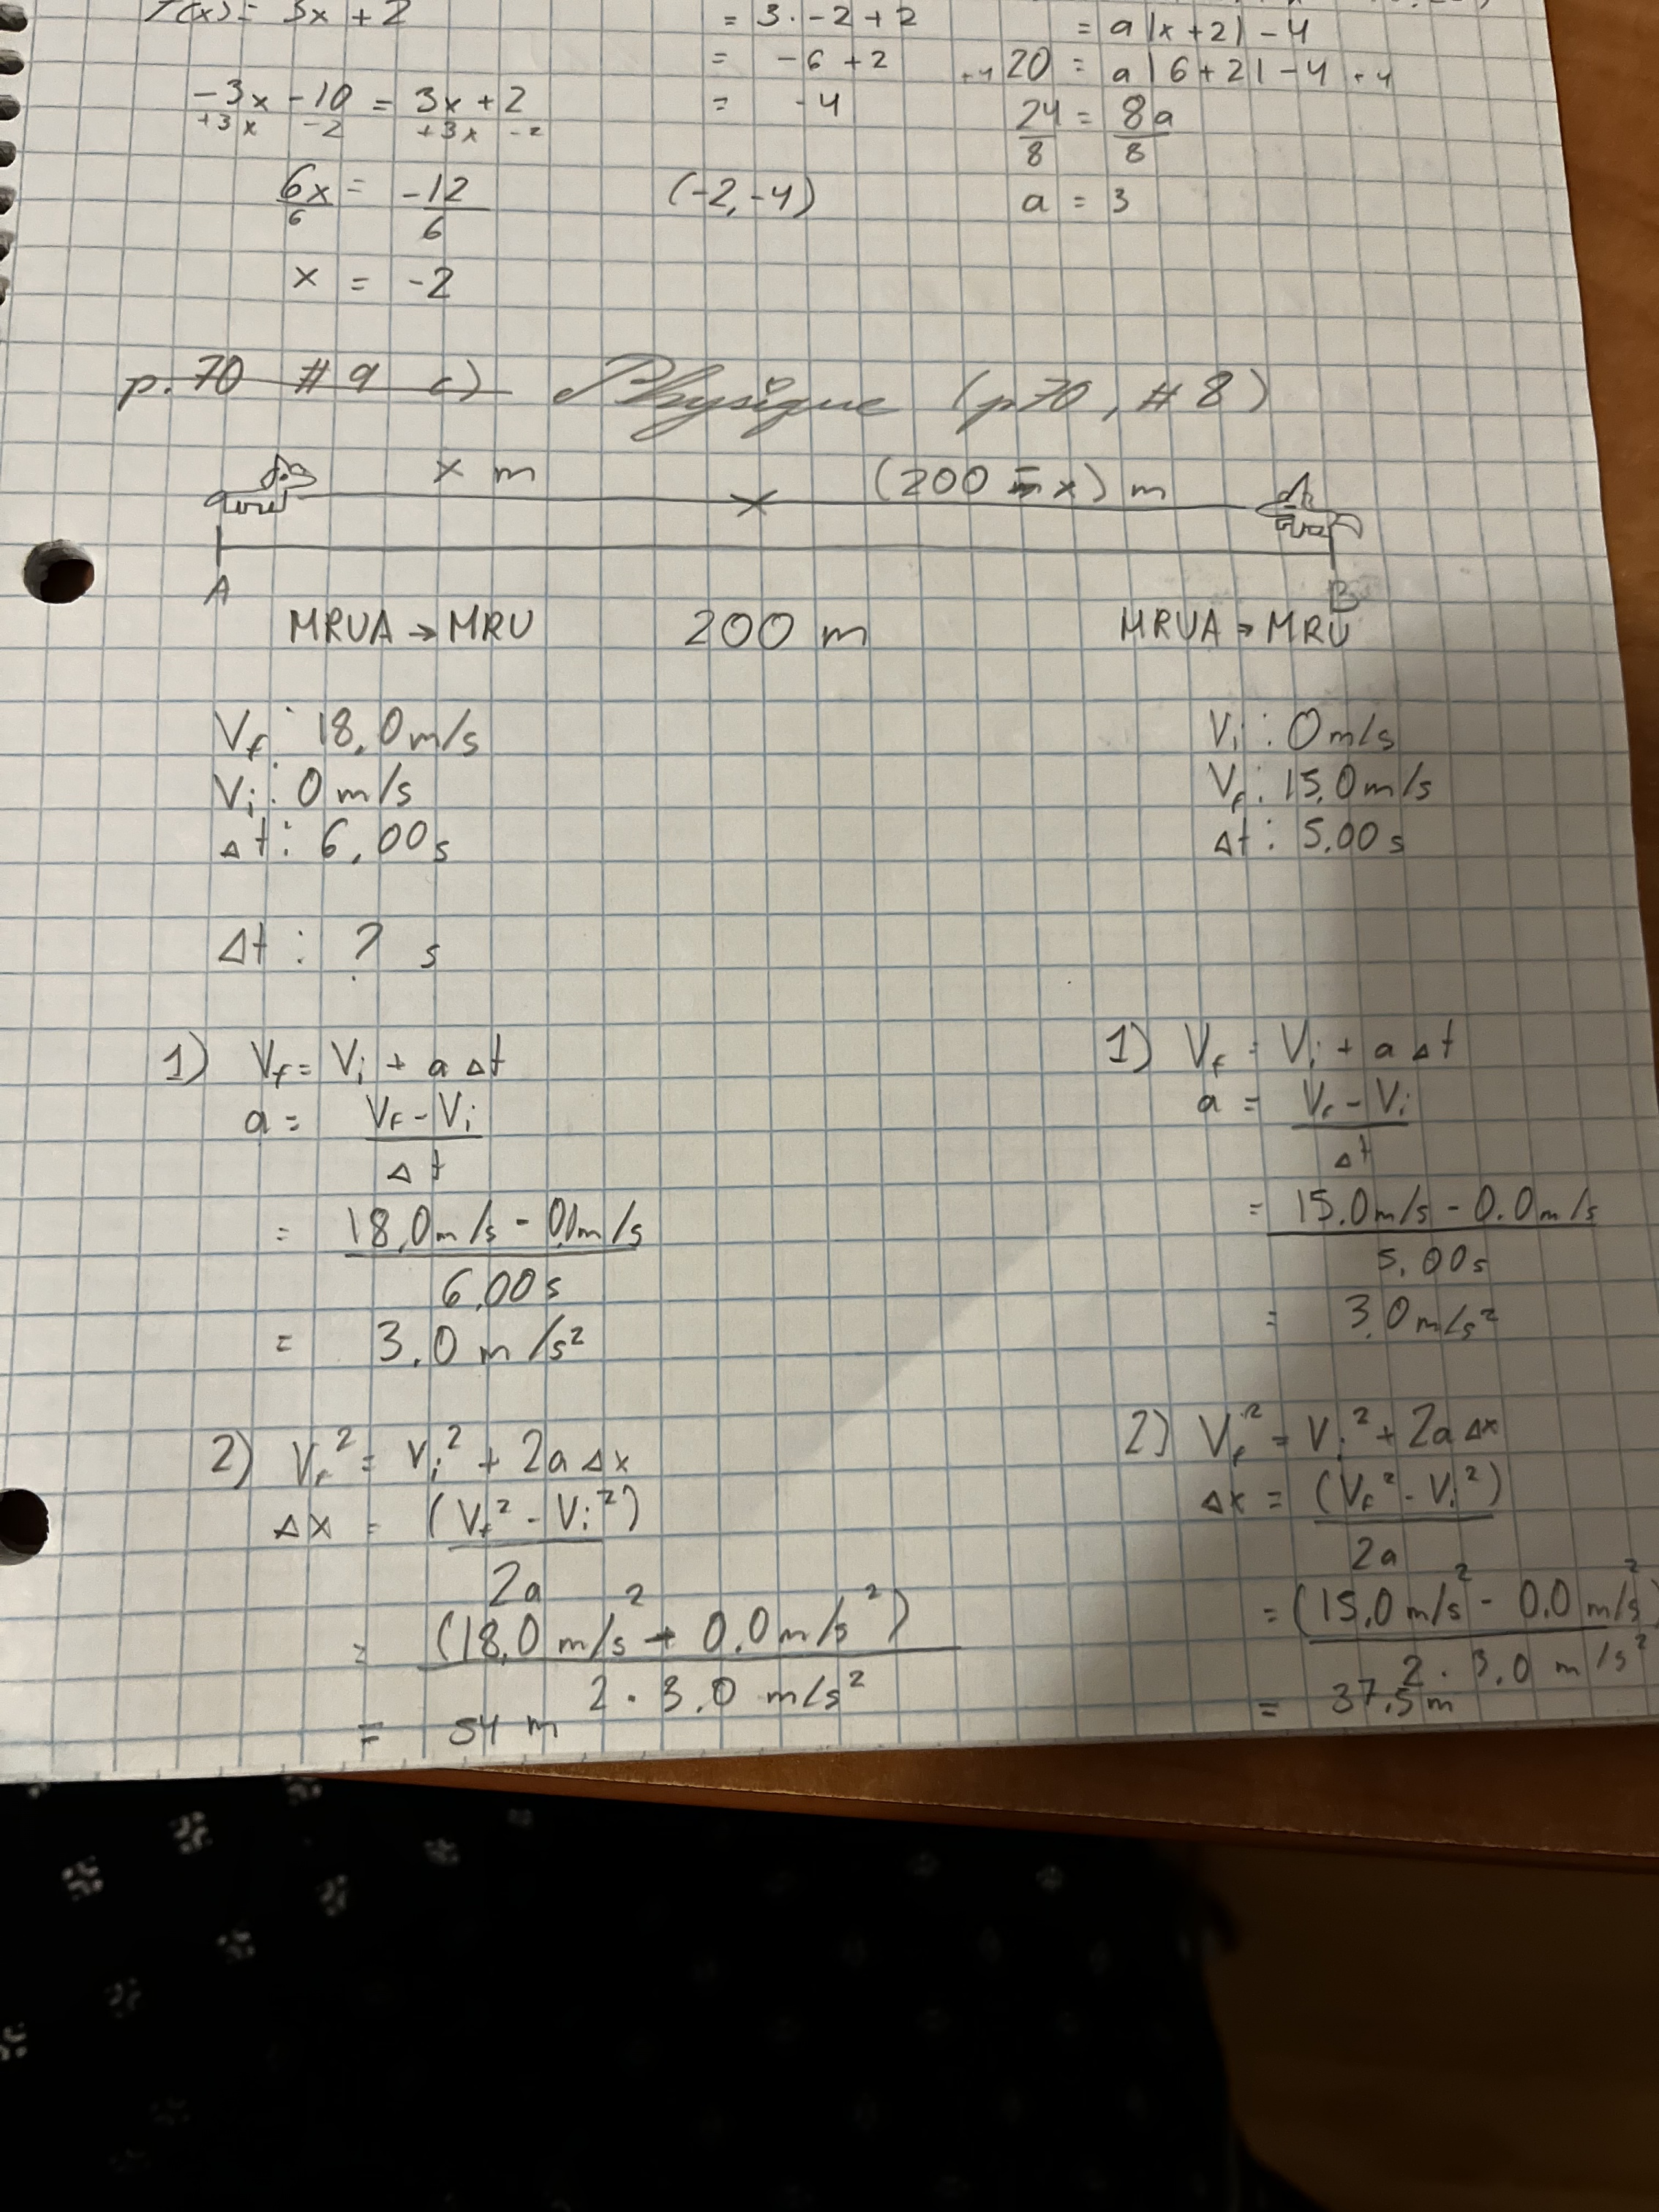 f(x) = 3x + 2
-3x - 10 = 3x + 2
+3x -2 +3x -2
6x = -12
6 6
x = -2
= 3 · -2 + 2
= -6 + 2
= -4
(-2, -4)
= a|x+2| - 4
+4 20 = a|6+2| - 4 +4
24 = 8a
8 8
a = 3
p.70 #9 c) Physique (p70, #8)
x m (200 - x) m
A B
MRUA → MRU 200 m MRUA → MRU
Vf : 18,0 m/s
Vi : 0 m/s
Δt : 6,00 s
Δt : ? s
1) Vf = Vi + a Δt
a = Vf - Vi
Δt
= 18,0 m/s - 0,0 m/s
6,00 s
= 3,0 m/s²
2) Vf² = Vi² + 2a Δx
Δx = (Vf² - Vi²)
2a
= (18,0 m/s² - 0,0 m/s²)
2 · 3,0 m/s²
= 54 m
Vi : 0 m/s
Vf : 15,0 m/s
Δt : 5,00 s
1) Vf = Vi + a Δt
a = Vf - Vi
Δt
= 15,0 m/s - 0,0 m/s
5,00 s
= 3,0 m/s²
2) Vf² = Vi² + 2a Δx
Δx = (Vf² - Vi²)
2a
= (15,0 m/s² - 0,0 m/s²)
2 · 3,0 m/s²
= 37,5 m